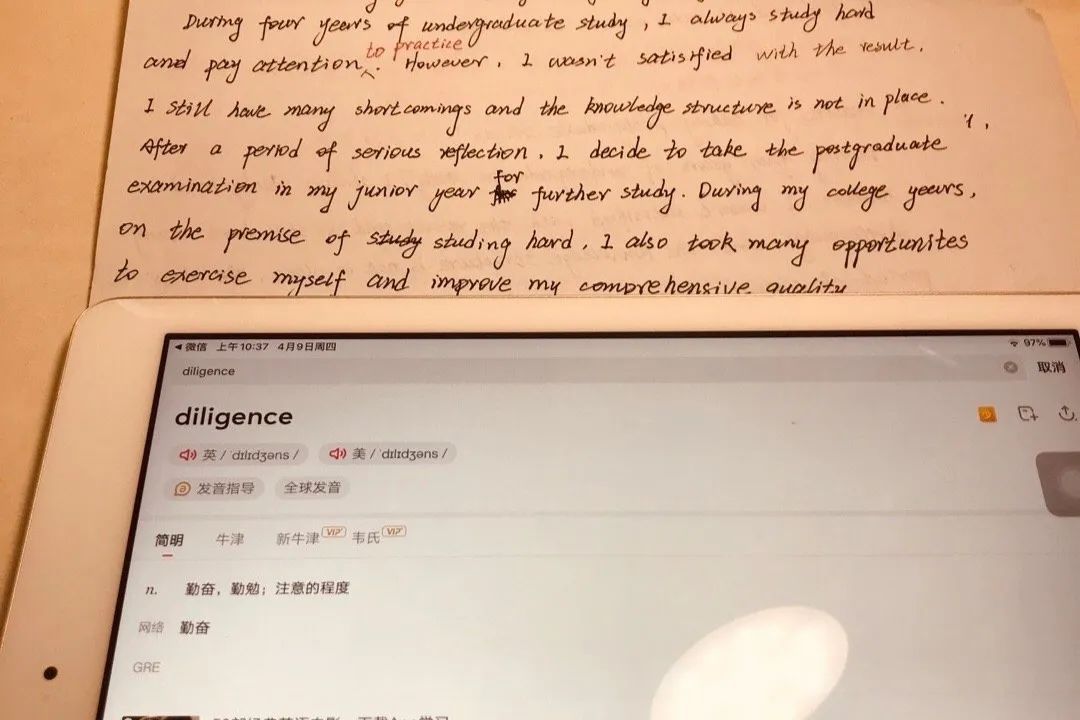 During four years of undergraduate study, I always study hard
and pay attention to practice. However, I wasn't satisfied with the result.
I still have many shortcomings and the knowledge structure is not in place.
After a period of serious reflection, I decide to take the postgraduate
examination in my junior year for further study. During my college years,
on the premise of study studing hard, I also took many opportunites
to exercise myself and improve my comprehensive quality
微信 上午10:37 4月9日周四 97%
diligence 取消
diligence
英 / ˈdɪlɪdʒəns / 美 / ˈdɪlɪdʒəns /
发音指导 全球发音
简明 牛津 新牛津 VIP 韦氏 VIP
n. 勤奋，勤勉；注意的程度
网络 勤奋
GRE